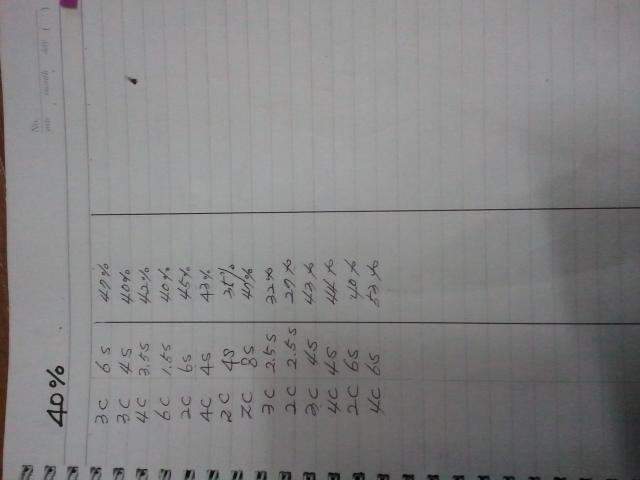 No.
40%
3C 6S 49%
3C 4S 40%
4C 3.5S 42%
6C 1.5S 40%
2C 6S 45%
4C 4S 43%
2C 4S 35%
2C 8S 47%
3C 2.5S 32%
2C 2.5S 29%
3C 4S 43%
4C 4S 44%
2C 6S 40%
4C 6S 53%